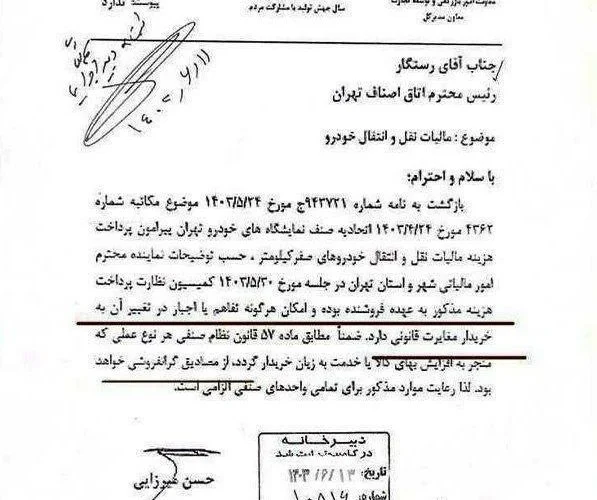 معاون مدیرکل
سال جهش تولید با مشارکت مردم
پیوست: ندارد
جناب آقای رستگار
رئیس محترم اتاق اصناف تهران
موضوع : مالیات نقل و انتقال خودرو
با سلام و احترام؛
بازگشت به نامه شماره ۹۴۳۷۲۱ج مورخ ۱۴۰۳/۵/۲۴ موضوع مکاتبه شماره
۴۳۶۲ مورخ ۱۴۰۳/۴/۲۴ اتحادیه صنف نمایشگاه های خودرو تهران پیرامون پرداخت
هزینه مالیات نقل و انتقال خودروهای صفرکیلومتر ، حسب توضیحات نماینده محترم
امور مالیاتی شهر و استان تهران در جلسه مورخ ۱۴۰۳/۵/۳۰ کمیسیون نظارت پرداخت
هزینه مذکور به عهده فروشنده بوده و امکان هرگونه تفاهم یا اجبار در تغییر آن به
خریدار مغایرت قانونی دارد. ضمناً مطابق ماده ۵۷ قانون نظام صنفی هر نوع عملی که
منجر به افزایش بهای کالا یا خدمت به زیان خریدار گردد، از مصادیق گرانفروشی خواهد
بود. لذا رعایت موارد مذکور برای تمامی واحدهای صنفی الزامی است.
حسن میرزایی
دبیرخانه
تاریخ: ۱۴۰۳/۶/۱۳
شماره: